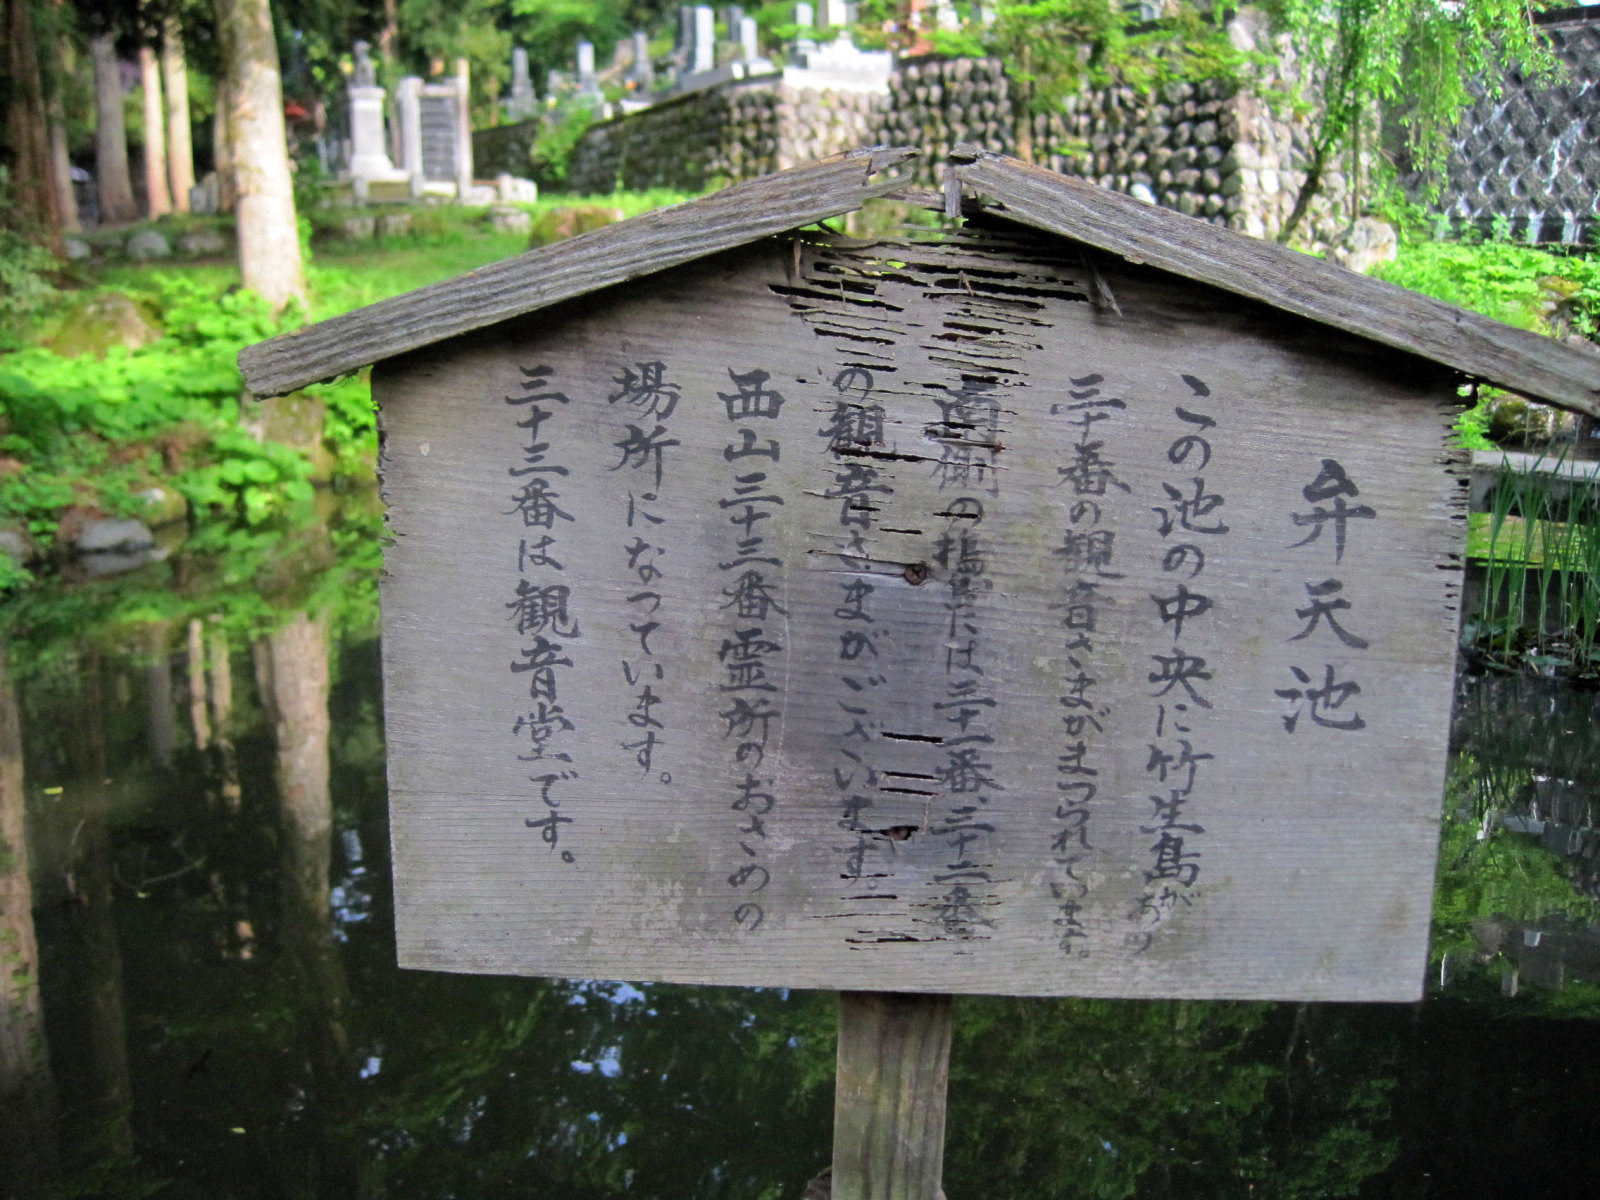 弁天池
この池の中央に竹生島があり
三十番の観音さまがまつられています。
南側の摛には三十一番、三十二番
の観音さまがございます。
西山三十三番霊所のおさめの
場所になっています。
三十三番は観音堂です。